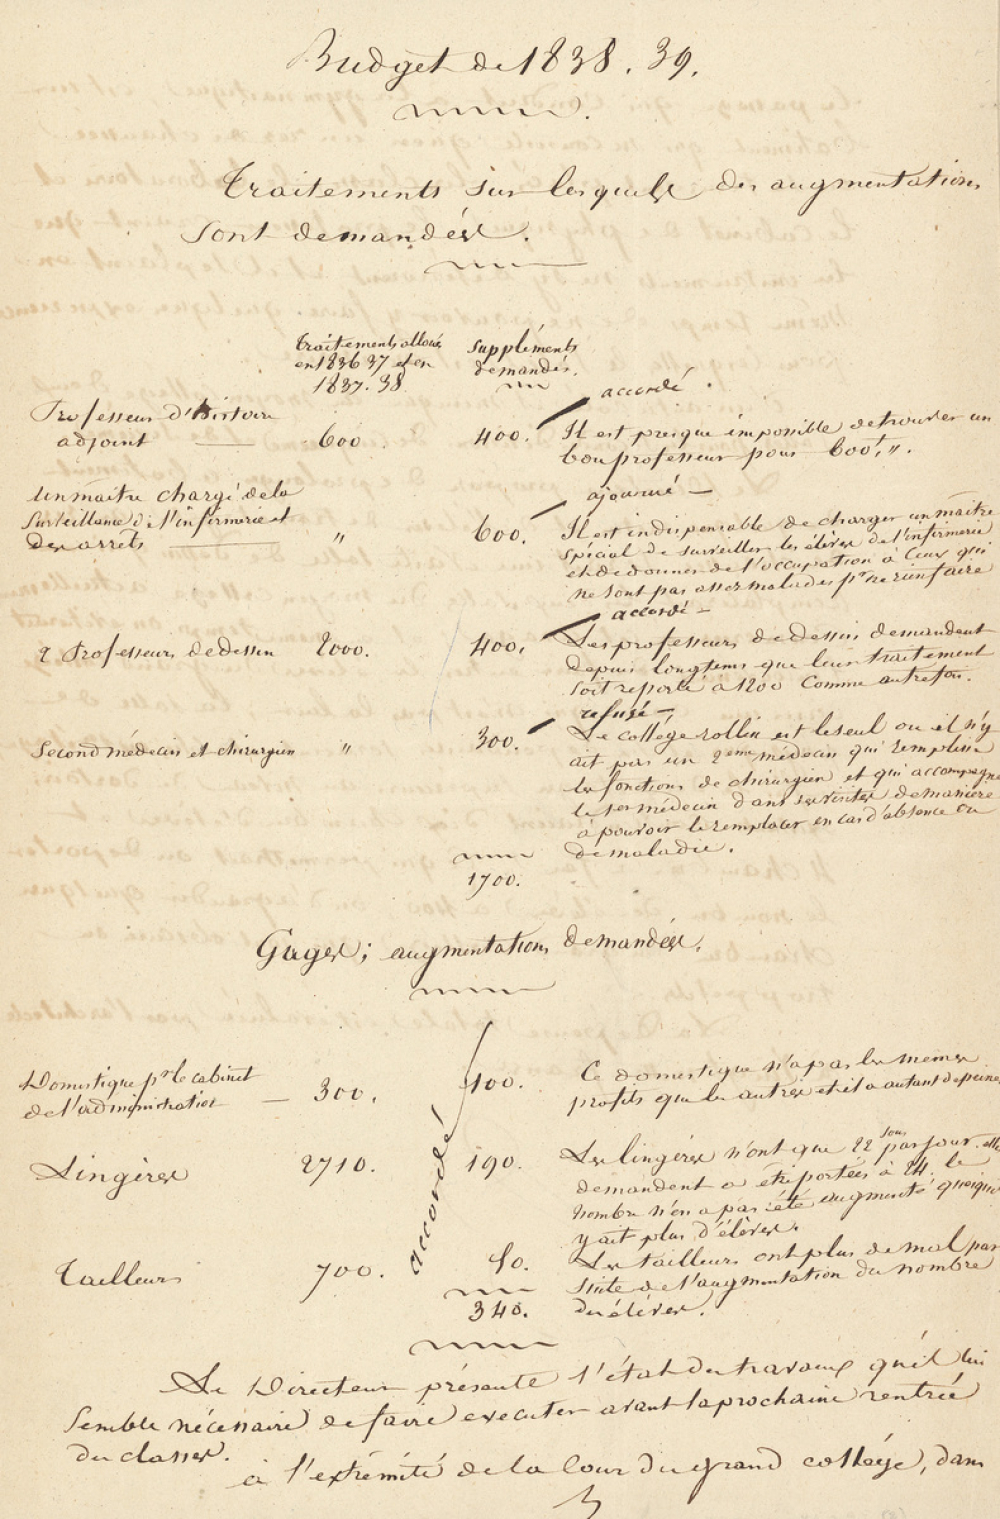 Budget de 1838. 39.
Traitements sur lesquels des augmentations
sont demandées.
traitements alloués
en 1836 37 et en
1837. 38
suppléments
demandés.
accordé.
Professeur d'histoire
adjoint — 600. 400. Il est presque impossible de trouver un
bon professeur pour 600f,,.
ajourné —
Un maître chargé de la
surveillance de l'infirmerie et
des arrêts — " 600. Il est indispensable de charger un maître
spécial de surveiller les élèves de l'infirmerie
et de donner de l'occupation à ceux qui
ne sont pas assez malades pr ne rien faire
accordé —
2 Professeurs de dessin 2000. 400. Les professeurs de dessin demandent
depuis longtems que leur traitement
soit reporté à 1200 comme autrefois.
refusé —
Second médecin et chirurgien " 300. Le collége rollin est le seul ou il n'y
ait pas un 2eme médecin qui remplisse
les fonctions de chirurgien et qui accompagne
le 1er médecin dans ses visites de manière
à pouvoir le remplacer en cas d'absence ou
de maladie.
1700.
Gages; augmentations demandées.
Domestique pr le cabinet
de l'administration — 300. 100. Ce domestique n'a pas les mêmes
profits que les autres et il a autant de peine.
Lingères 2710. 190. Les lingères n'ont que 22 sous par jour. elles
demandent a etre portées à 24. le
nombre n'en a pas été augmenté quoiqu'il
y ait plus d'élèves.
accordé
Tailleurs 700. 50. Les tailleurs ont plus de mal par
suite de l'augmentation du nombre
des élèves.
340.
Le Directeur présente l'état des travaux qu'il lui
semble nécessaire de faire executer avant la prochaine rentrée
des classes.
à l'extrémité de la cour du grand collége, dans